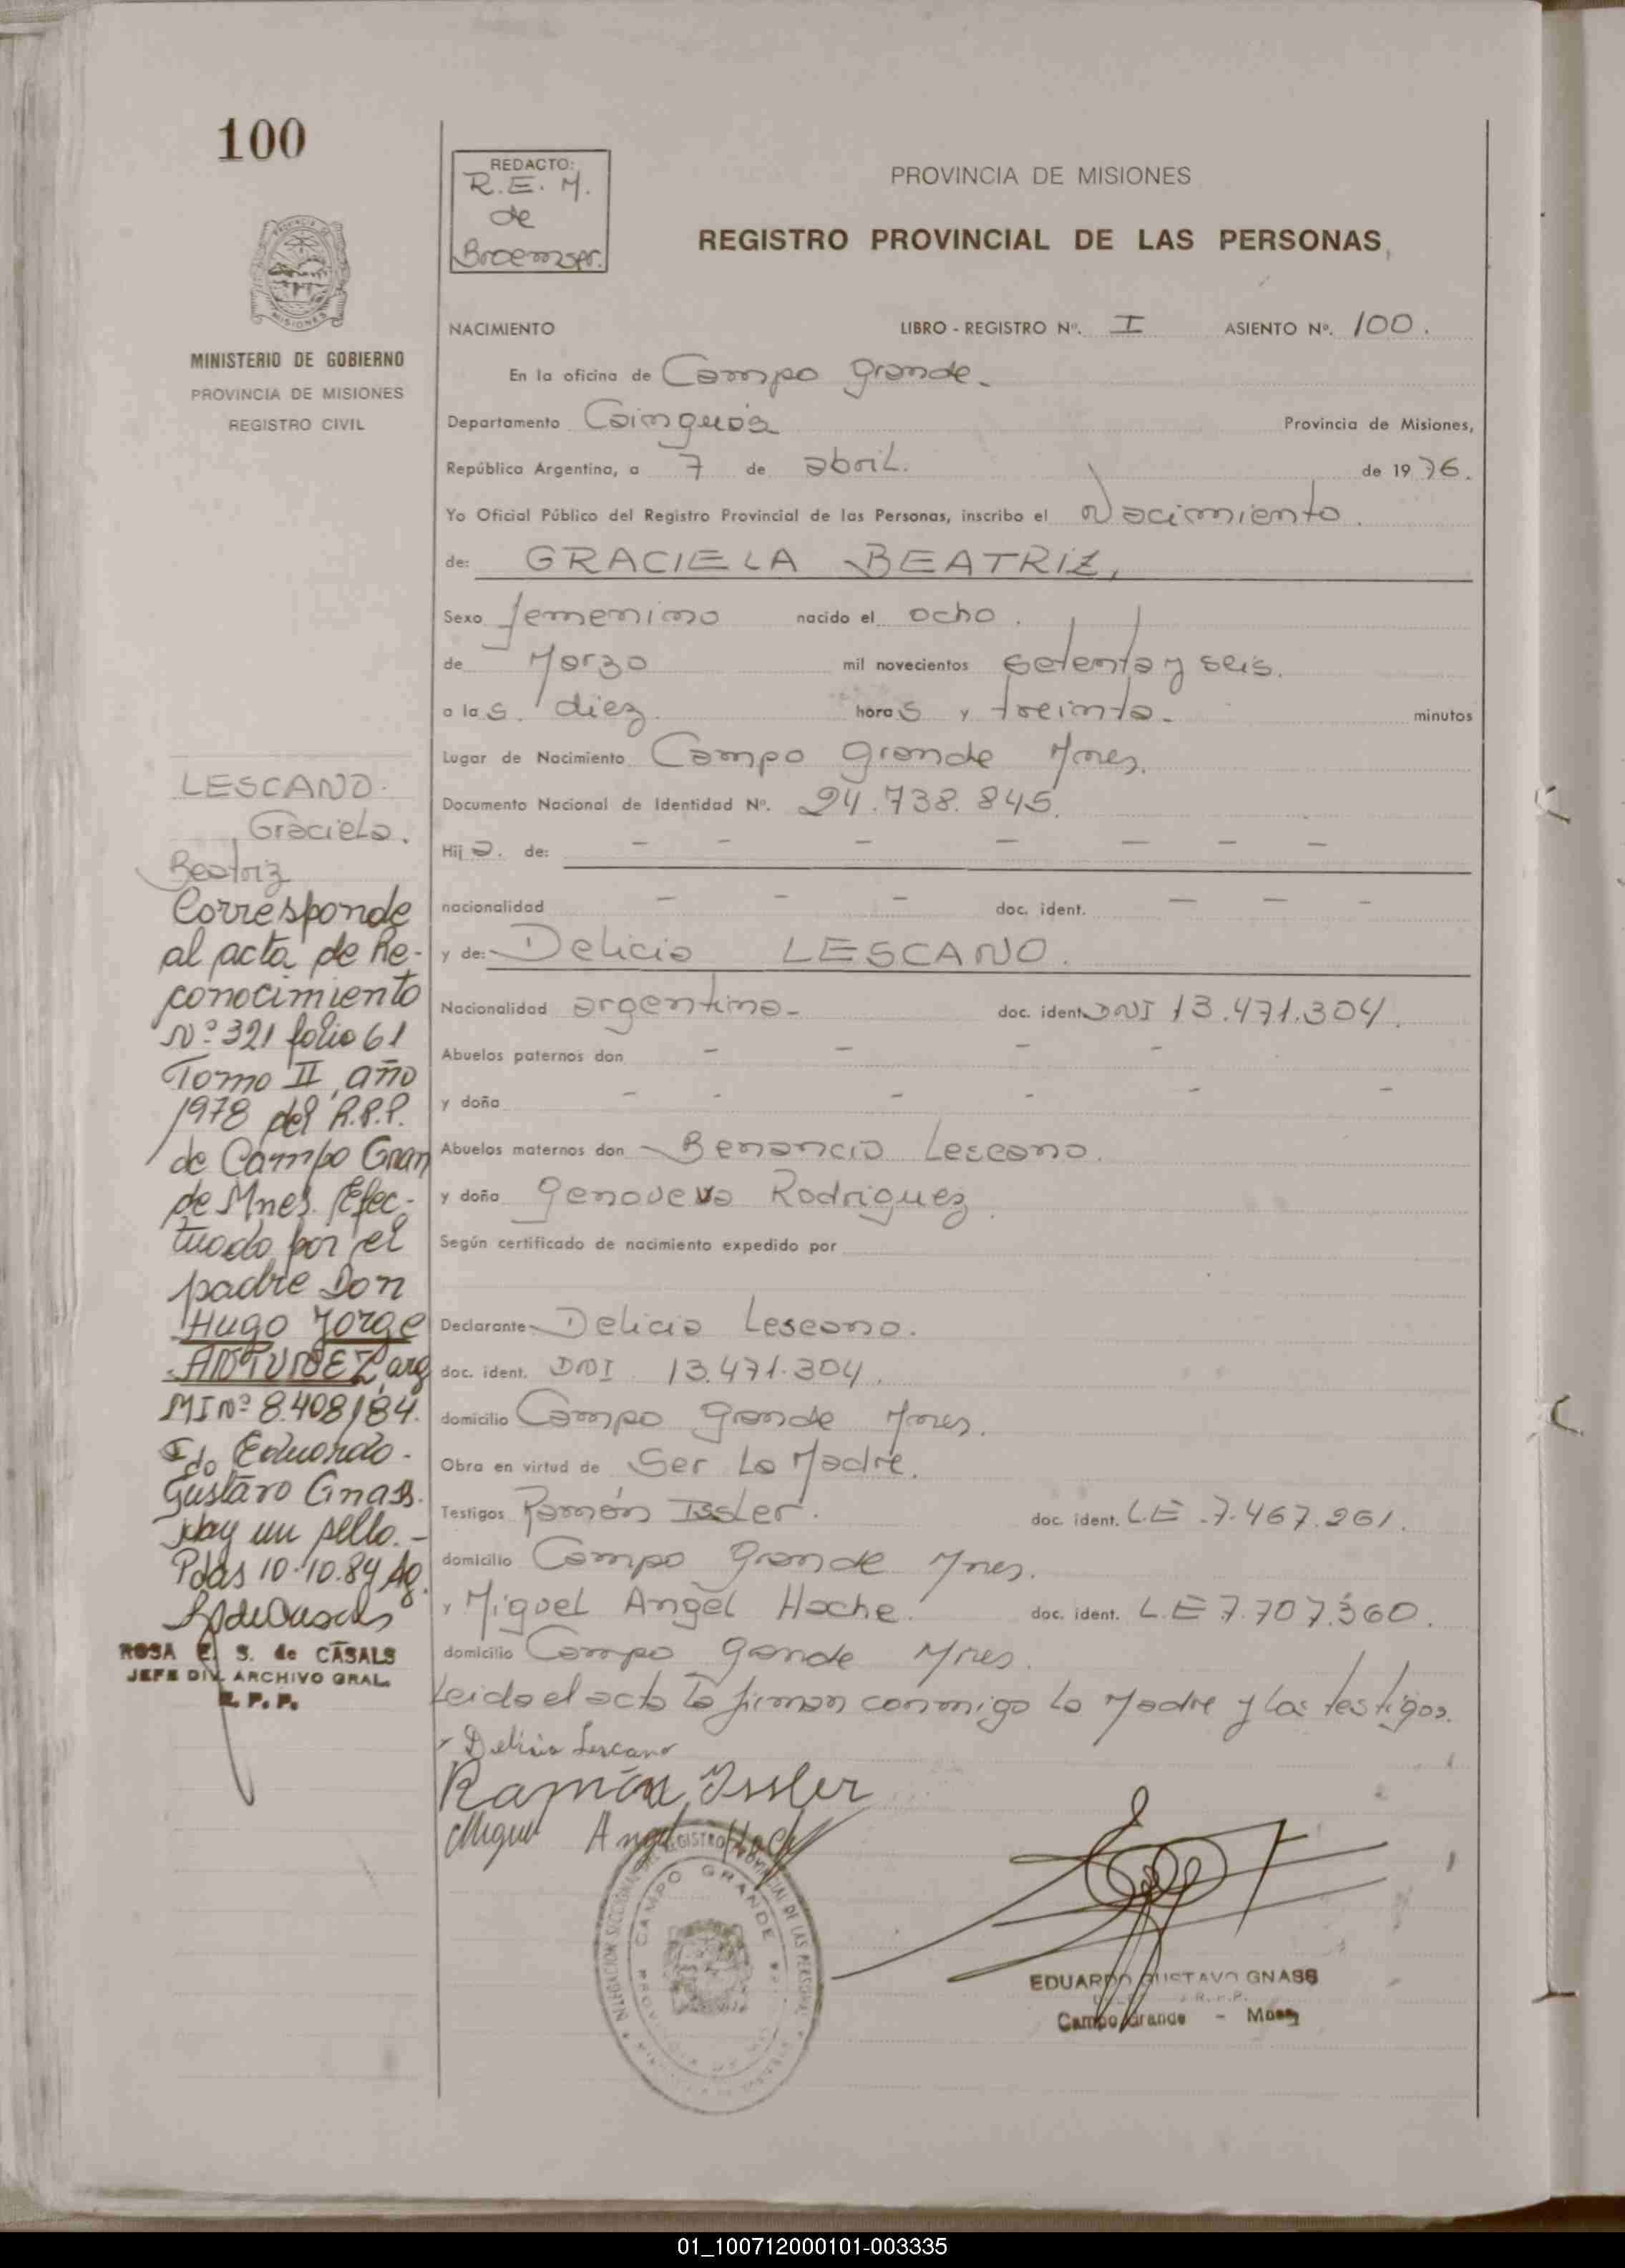 100
REDACTO:
R.E.M.
de
Broemser.
PROVINCIA DE MISIONES
REGISTRO PROVINCIAL DE LAS PERSONAS
MINISTERIO DE GOBIERNO
PROVINCIA DE MISIONES
REGISTRO CIVIL
NACIMIENTO LIBRO - REGISTRO Nº. I ASIENTO Nº. 100.
En la oficina de Campo Grande.
Departamento Cainguás Provincia de Misiones,
República Argentina, a 7 de abril. de 1976.
Yo Oficial Público del Registro Provincial de las Personas, inscribo el Nacimiento.
de: GRACIELA BEATRIZ,
Sexo femenino nacido el ocho.
de Marzo mil novecientos setenta y seis.
a las. diez horas y treinta. minutos
Lugar de Nacimiento Campo Grande Mnes.
Documento Nacional de Identidad Nº. 24.738.845.
Hija. de: - - - - - - -
nacionalidad - - - doc. ident. - - -
y de: Delicia LESCANO.
Nacionalidad argentina. doc. ident. DNI 13.471.304.
Abuelos paternos don - - - -
y doña - - - - -
Abuelos maternos don Benancio Lescano.
y doña Genoveva Rodriguez.
Según certificado de nacimiento expedido por
Declarante Delicia Lescano.
doc. ident. DNI 13.471.304.
domicilio Campo Grande Mnes.
Obra en virtud de Ser La Madre.
Testigos Ramón Issler. doc. ident. L.E. 7.467.261.
domicilio Campo Grande Mnes.
y Miguel Angel Hoche. doc. ident. L.E 7.707.360.
domicilio Campo Grande Mnes.
Leida el acta la firman conmigo la Madre y los testigos.
Delicia Lescano
Ramón Issler
Miguel Angel Hoch
LESCANO.
Graciela.
Beatriz
Corresponde
al acta de Re-
conocimiento
Nº 321 folio 61
Tomo II, año
1978 del R.P.P.
de Campo Gran
de Mnes. Efec-
tuado por el
padre Don
Hugo Jorge
ANTUNEZ, arg
MI Nº 8.408.184.
Fdo Eduardo.
Gustavo Gnass.
Hay un sello.-
Pdas 10-10.84 Ag.
ROSA E. S. de CASALS
JEFE DIV. ARCHIVO GRAL.
R. P. P.
REGISTRO PROVINCIAL DE LAS PERSONAS
CAMPO GRANDE
EDUARDO GUSTAVO GNASS
R.P.P.
Campo Grande - Mnes
01_100712000101-003335